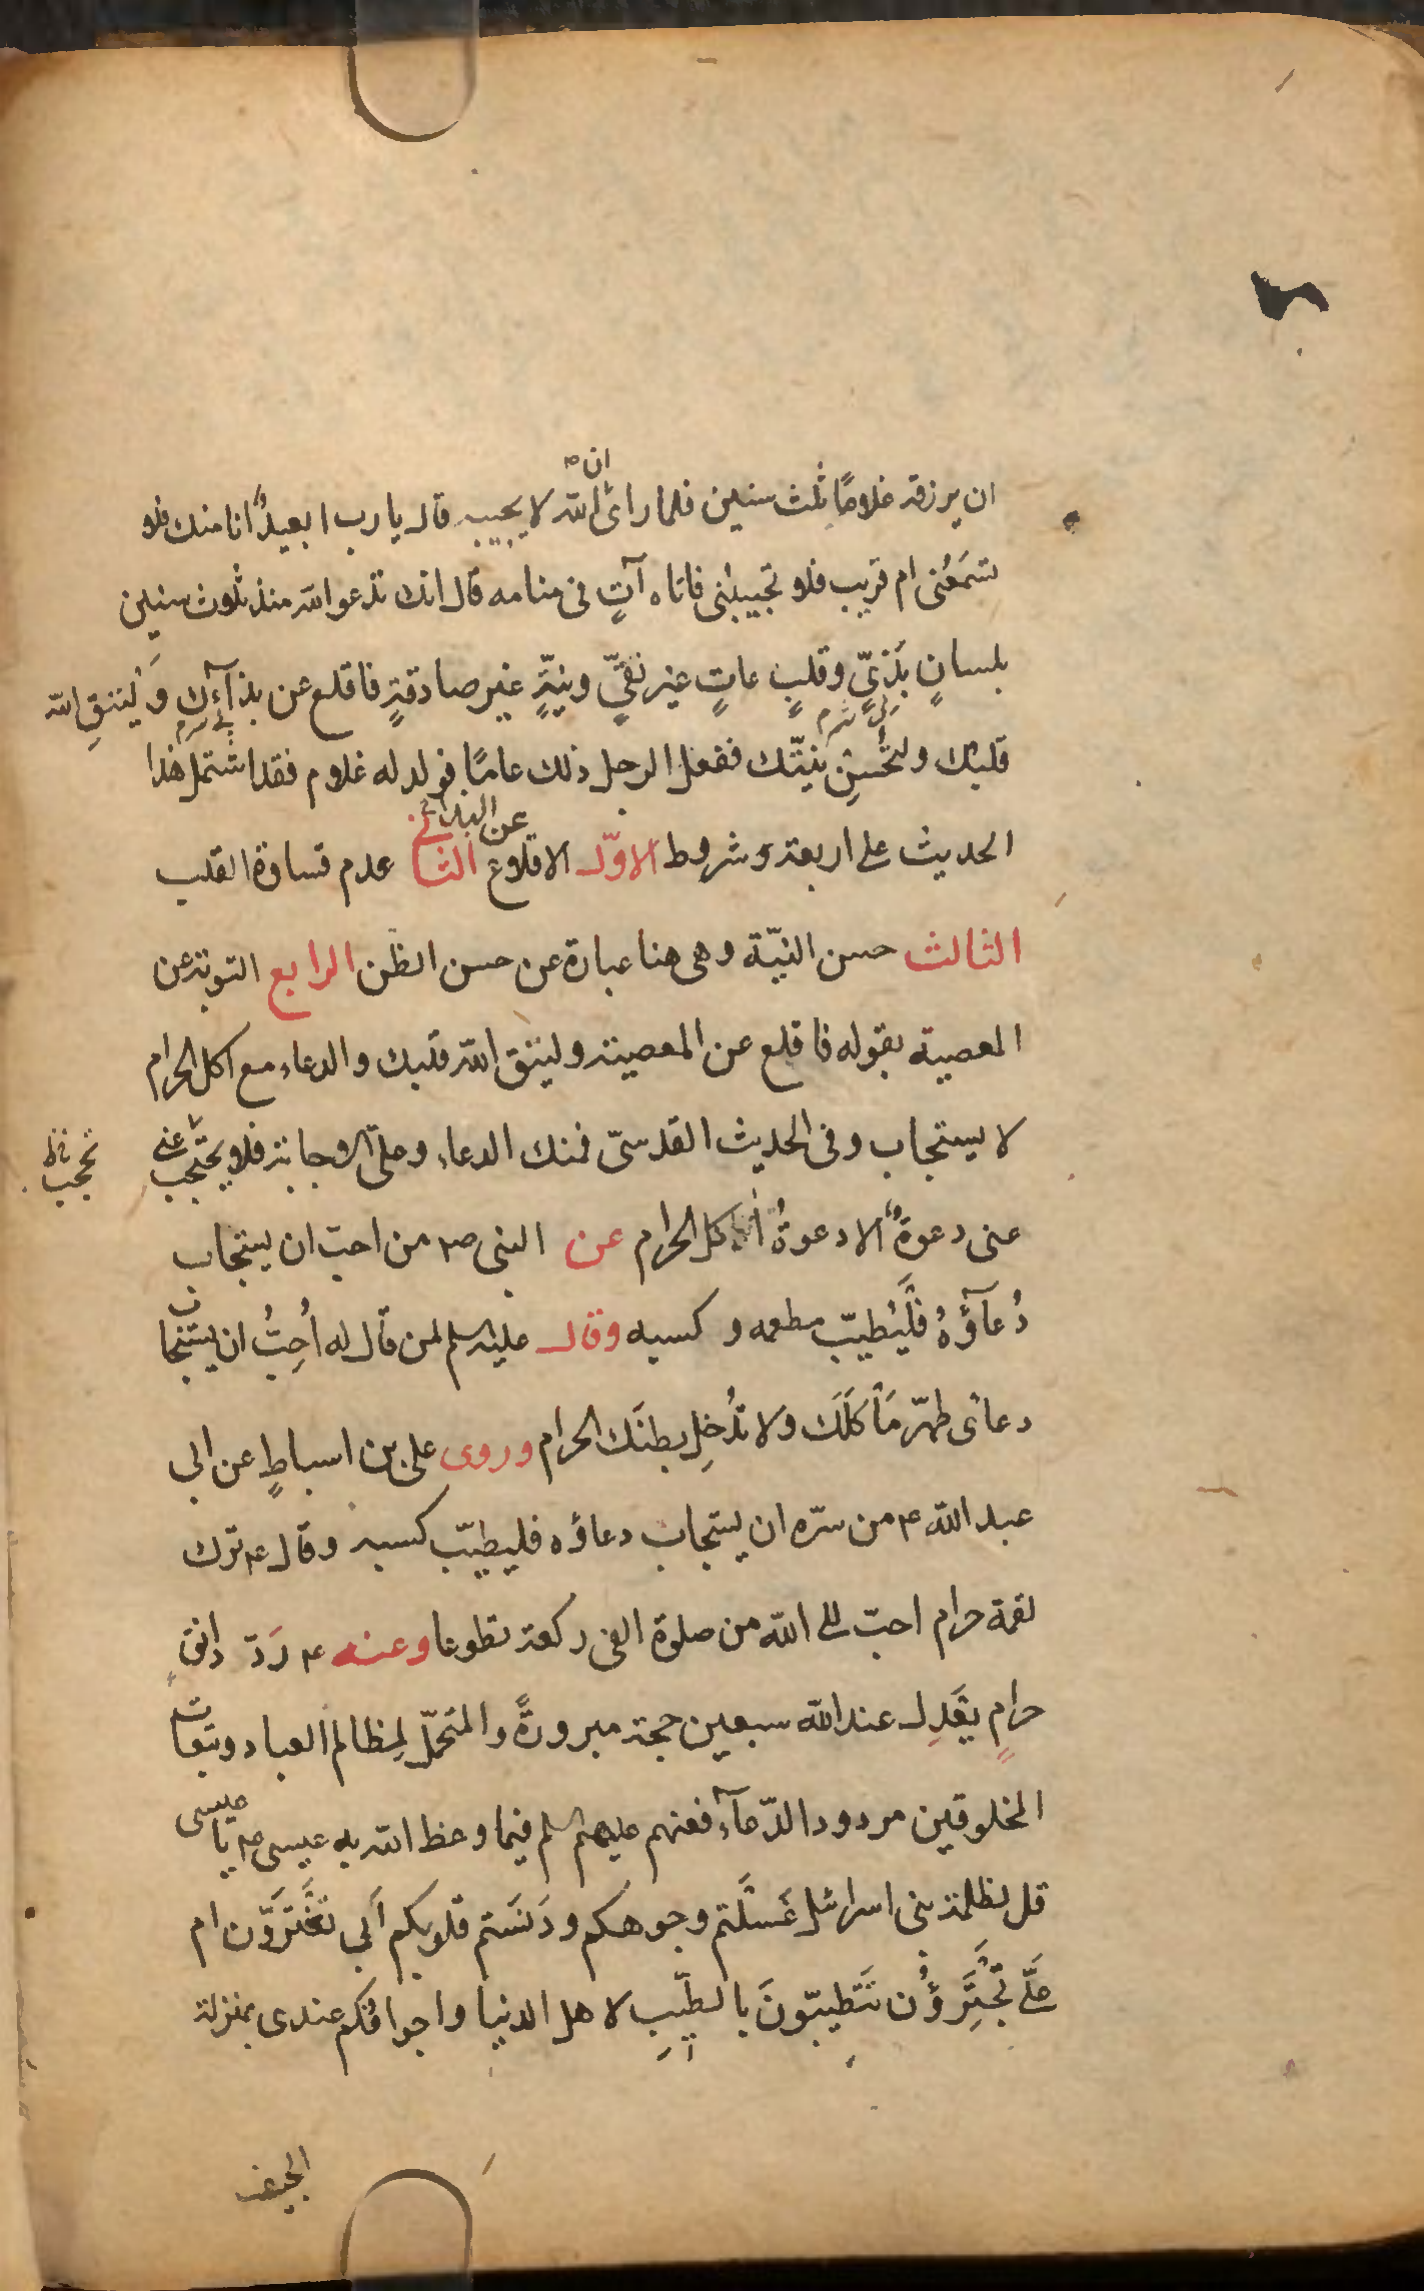 ان يرزقه غلامًا ثلث سنين فلما رأى ان الله لا يجيبه قال يا رب ا بعيدٌ انا منك فلا
تسمَعُنى ام قريب فلا تجيبنى فاتاه آتٍ فى منامه قال انك تدعو الله منذ ثلوث سنين
بلسانٍ بَذِىٍّ وقلبٍ عاتٍ غير نقىٍّ ونيّةٍ غير صادقةٍ فاقلع عن بذآءك وَليتقِ الله
قلبك ولتحُسِن نيّتك ففعل الرجل ذلك عامًا فولد له غلام فقد اشتمل هذا
الحديث على اربعة شروط الاوّل الاقلاع عن البذاء الثانى عدم قساوة القلب
الثالث حسن النيّة وهى هنا عبارة عن حسن الظن الرابع التوبة عن
المعصية بقوله فاقلع عن المعصية وليتق الله قلبك والدعاء مع اكل الحرام
لا يستجاب وفى الحديث القدسىّ فمنك الدعاء وعلىّ الاجابة فلا يحتجب عنى
تحجب ظ
عنى دعوةٌ الا دعوةُ اكل الحرام عن النبى ص من احبّ ان يستجاب
دُعآؤهُ فَليُطيّب مطعمه وكسبه وقال عليه السلم لمن قال له اُحِبُّ ان يستجاب
دعائى طهّر مَأكَلَك ولا تُدخِل بطنَك الحرام وروى على بن اسباطٍ عن ابى
عبد الله ع من سرّه ان يستجاب دعاؤه فليطيّب كسبه وقال ع ترك
لقمة حرام احبّ الى الله من صلوة الفى ركعة تطوعا وعنه ع رَدّ دانقٍ
حرامٍ يَعدِل عند الله سبعين حجة مبرورةً والمتحمّل لمظالم العباد وتبعات
المخلوقين مردود الدّعآء فعنهم عليهم السلم فيما وعظ الله به عيسى ع يا عيسى
قل لظلمة بنى اسرائل غَسَلتم وجوهكم ودَنَستم قلوبكم اَبى تَغتَرّون ام
عَلَىّ تَجتَرِؤُن تتَطيبّونَ بالطّيبِ لاهل الدنيا واجوافكم عندى بمنزلة
الجيف